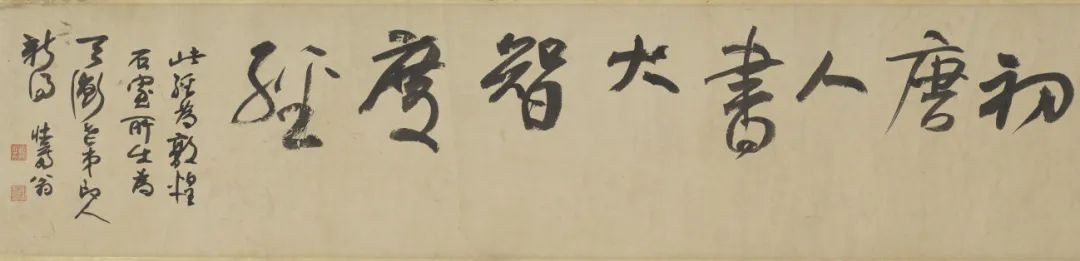 初唐人書大智度經
此經為敦煌
石室所出為
老弟
新得 翁